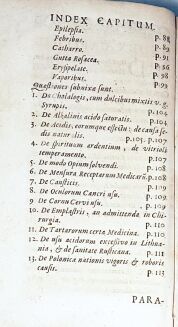 INDEX CAPITUM.
Epilepsia. p. 88
Febribus. p. 89
Catharro. p. 91
Gutta Rosacea. p. 96
Erysipelate. p. 98
Vaporibus. p. 92
Quæstiones subnixæ sunt.
1. De Cholalogis, cum dulcibus mixtis v. g.
Syrupis. p. 104
2. De Alkalinis acido saturatis. p. 104
3. De Acidis, eorumque effectu: de causa se-
dis natur lis. p. 105. p. 107
4. De spirituum ardentium, & vitrioli
temperamento. p. 107
5. De modo Opium solvendi. p. 108
6. De Mensura Receptarum Medicarũ. p. 108
7. De Causticis. p. 108
8. De Oculorum Cancri usu. p. 109
9. De Cornu Cervi usu. p. 109
10. De Emplastris, an admittenda in Chi-
rurgia. p. 110
11. De Tartarorum certa Medicina. p. 110
12. De usu acidorum excessivo in Lithua-
nia, & de sanitate Rusticana. p. 111
13. De Polonicæ nationis vigoris & roboris
causis. p. 113
PARA-